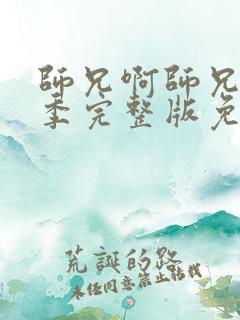 師兄啊師兄
季完整版免
荒誕的路
未任同意禁止轉載